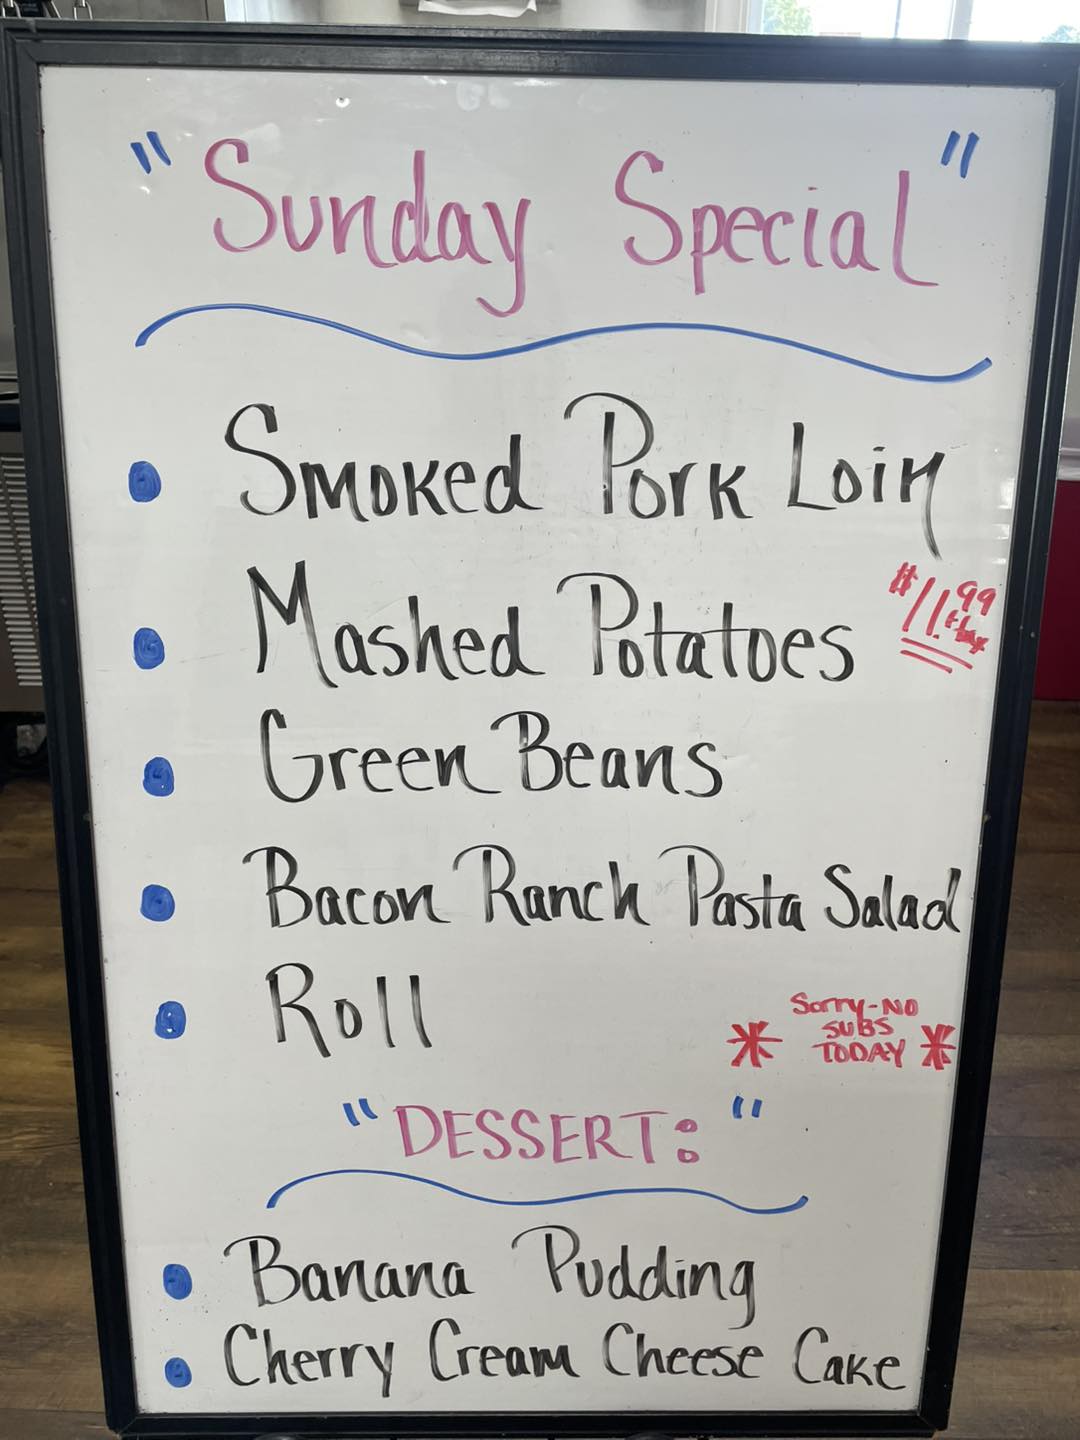 "Sunday Special"
• Smoked Pork Loin
$11.99
+tax
• Mashed Potatoes
• Green Beans
• Bacon Ranch Pasta Salad
• Roll
Sorry-NO
* SUBS *
TODAY
"DESSERT:"
• Banana Pudding
• Cherry Cream Cheese Cake